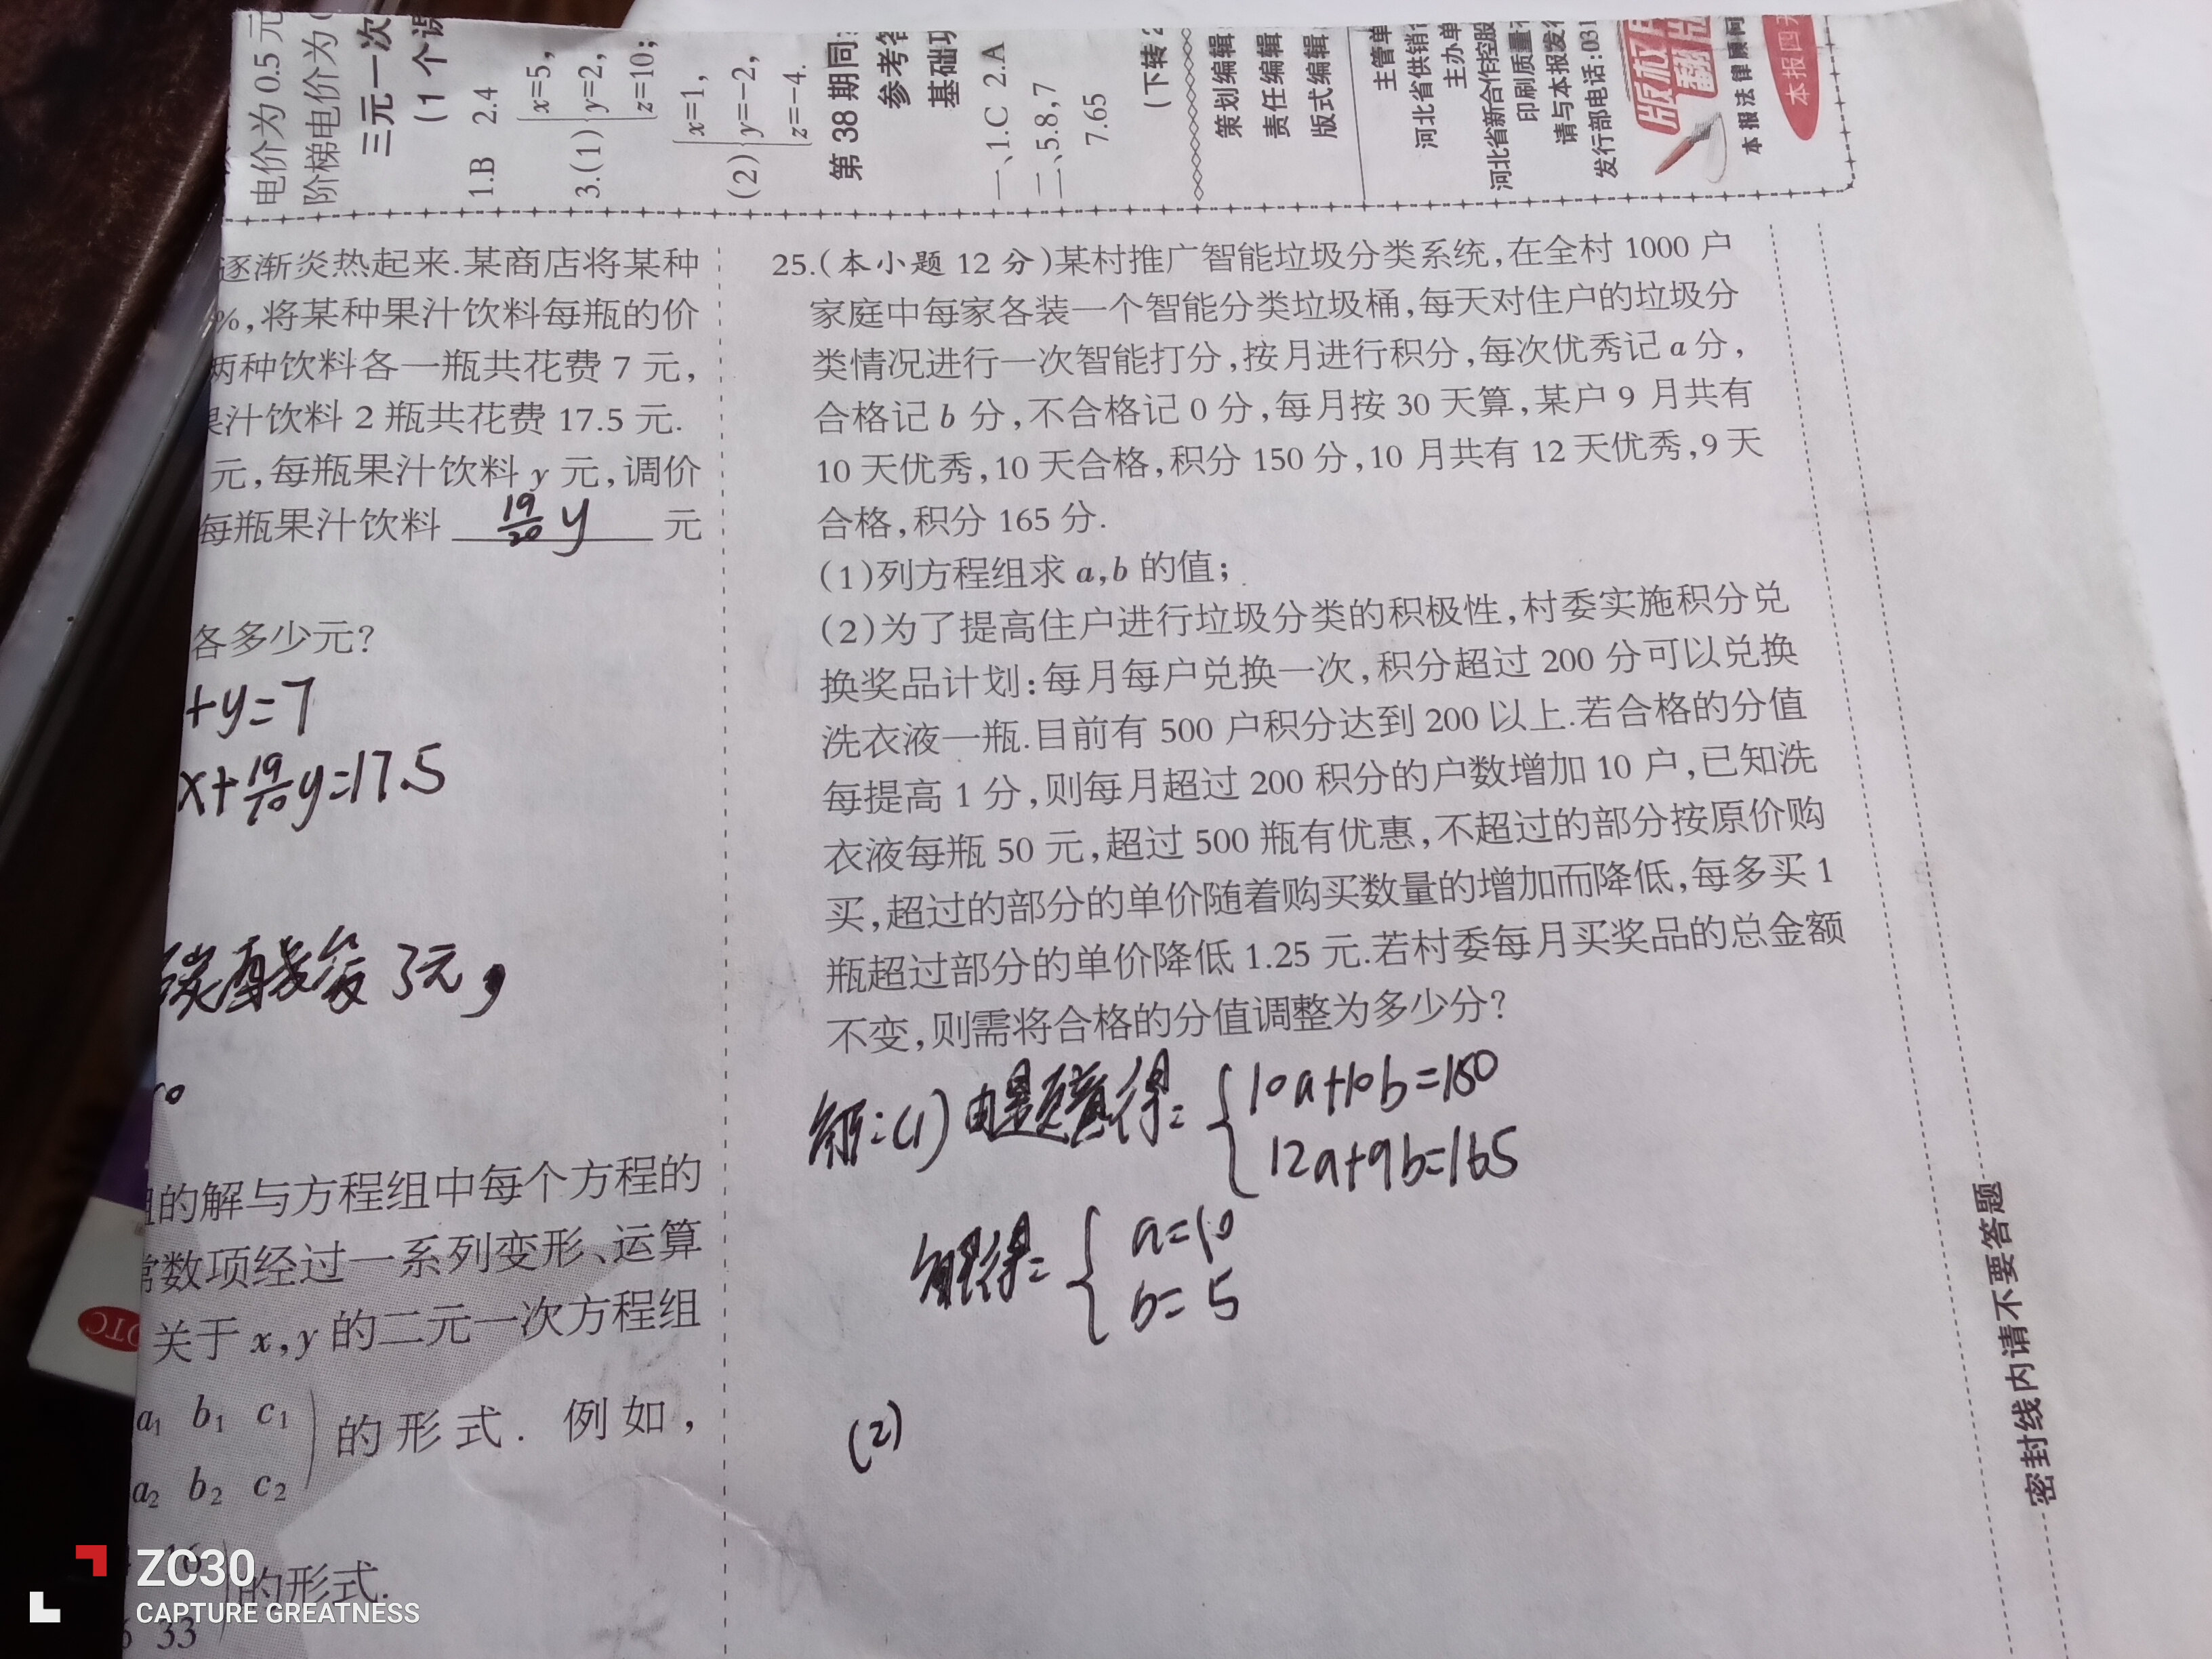 电价为 0.5 元
阶梯电价为
三元一次
(1 个课
1.B 2.4
3.(1) x=5,
y=2,
z=10;
(2) x=1,
y=-2,
z=-4.
第 38 期同
参考答
基础巩
一、1.C 2.A
二、5.8,7
7.65
(下转 2
策划编辑
责任编辑
版式编辑
主管单
河北省供销
主办单
河北省新合作控股
印刷质量
请与本报发行
发行部电话:031
版权
翻版
本报法律顾问
本报四
逐渐炎热起来.某商店将某种
%,将某种果汁饮料每瓶的价
两种饮料各一瓶共花费 7 元,
果汁饮料 2 瓶共花费 17.5 元.
元,每瓶果汁饮料 y 元,调价
每瓶果汁饮料 19/20 y 元
各多少元?
+y=7
x+19/10y=17.5
碳酸每 3元,
组的解与方程组中每个方程的
常数项经过一系列变形、运算
关于 x,y 的二元一次方程组
a₁ b₁ c₁
a₂ b₂ c₂
的形式. 例如,
16
33
的形式.
25.(本小题 12 分)某村推广智能垃圾分类系统,在全村 1000 户
家庭中每家各装一个智能分类垃圾桶,每天对住户的垃圾分
类情况进行一次智能打分,按月进行积分,每次优秀记 a 分,
合格记 b 分,不合格记 0 分,每月按 30 天算,某户 9 月共有
10 天优秀,10 天合格,积分 150 分,10 月共有 12 天优秀,9 天
合格,积分 165 分.
(1)列方程组求 a,b 的值;
(2)为了提高住户进行垃圾分类的积极性,村委实施积分兑
换奖品计划:每月每户兑换一次,积分超过 200 分可以兑换
洗衣液一瓶.目前有 500 户积分达到 200 以上.若合格的分值
每提高 1 分,则每月超过 200 积分的户数增加 10 户,已知洗
衣液每瓶 50 元,超过 500 瓶有优惠,不超过的部分按原价购
买,超过的部分的单价随着购买数量的增加而降低,每多买 1
瓶超过部分的单价降低 1.25 元.若村委每月买奖品的总金额
不变,则需将合格的分值调整为多少分?
解:(1)由题意得: 10a+10b=150
12a+9b=165
解得: a=10
b=5
(2)
密封线内请不要答题
OTC
ZC30
CAPTURE GREATNESS